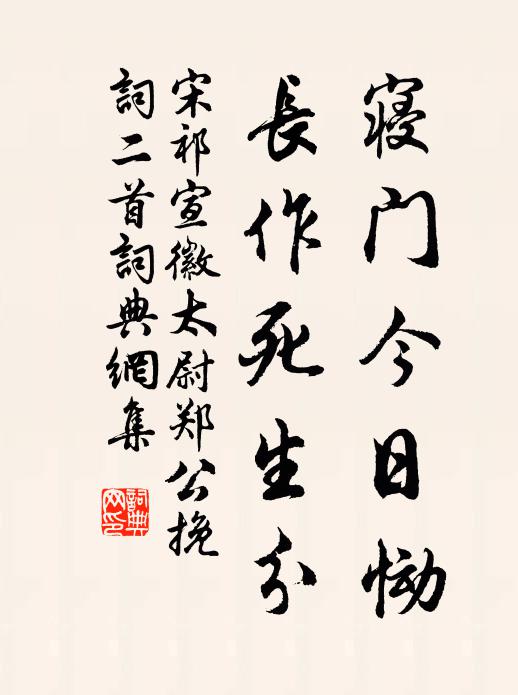 寝门今日恸
長作死生分
宋祁宣徽太尉郑公挽
詞二首詞典網集
詞典网印